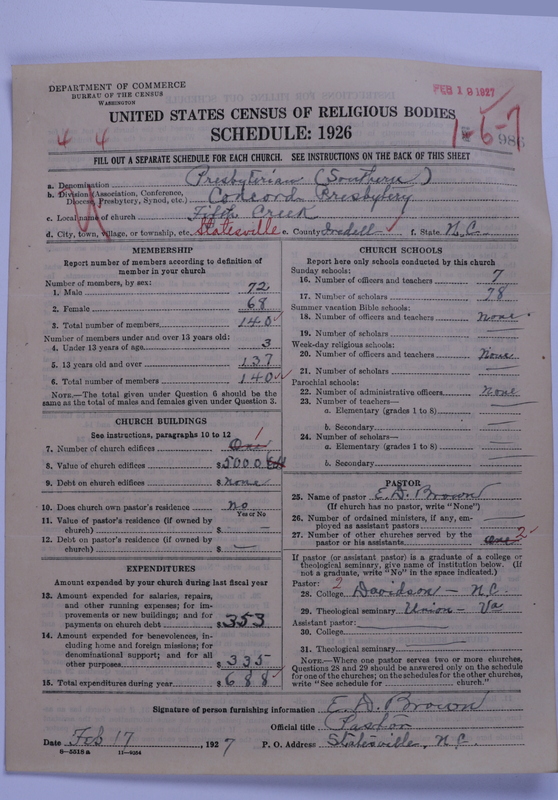 DEPARTMENT OF COMMERCE
BUREAU OF THE CENSUS
WASHINGTON
FEB 19 1927
UNITED STATES CENSUS OF RELIGIOUS BODIES
SCHEDULE: 1926
1-6-7
986
4 4
FILL OUT A SEPARATE SCHEDULE FOR EACH CHURCH. SEE INSTRUCTIONS ON THE BACK OF THIS SHEET
a. Denomination Presbyterian (Southern)
b. Division (Association, Conference, Diocese, Presbytery, Synod, etc.) Concord Presbytery
c. Local name of church Fifth Creek
d. City, town, village, or township, etc. Statesville e. County Iredell f. State N.C.
MEMBERSHIP
Report number of members according to definition of
member in your church
Number of members, by sex:
1. Male 72
2. Female 68
3. Total number of members 140
Number of members under and over 13 years old:
4. Under 13 years of age 3
5. 13 years old and over 137
6. Total number of members 140
NOTE.—The total given under Question 6 should be
the same as the total of males and females given under Question 3.
CHURCH BUILDINGS
See instructions, paragraphs 10 to 12
7. Number of church edifices One 1
8. Value of church edifices $5000
9. Debt on church edifices $ none
10. Does church own pastor's residence? No
Yes or No
11. Value of pastor's residence (if owned by
church) $ —
12. Debt on pastor's residence (if owned by
church) $ —
EXPENDITURES
Amount expended by your church during last fiscal year
13. Amount expended for salaries, repairs,
and other running expenses; for im-
provements or new buildings; and for
payments on church debt $353
14. Amount expended for benevolences, in-
cluding home and foreign missions; for
denominational support; and for all
other purposes $335
15. Total expenditures during year $688
CHURCH SCHOOLS
Report here only schools conducted by this church
Sunday schools:
16. Number of officers and teachers 7
17. Number of scholars 78
Summer vacation Bible schools:
18. Number of officers and teachers none
19. Number of scholars —
Week-day religious schools:
20. Number of officers and teachers None
21. Number of scholars —
Parochial schools:
22. Number of administrative officers None
23. Number of teachers—
a. Elementary (grades 1 to 8) —
b. Secondary —
24. Number of scholars—
a. Elementary (grades 1 to 8) —
b. Secondary —
PASTOR
25. Name of pastor E. D. Brown
(If church has no pastor, write "None")
26. Number of ordained ministers, if any, em-
ployed as assistant pastors —
27. Number of other churches served by the
pastor or his assistants one 2
If pastor (or assistant pastor) is a graduate of a college or
theological seminary, give name of institution below. (If
not a graduate, write "No" in the space indicated.)
Pastor: 2
28. College Davidson — N.C.
29. Theological seminary Union — Va
Assistant pastor:
30. College
31. Theological seminary
NOTE.—Where one pastor serves two or more churches,
Questions 28 and 29 should be answered only on the schedule
for one of the churches; on the schedules for the other churches,
write "See schedule for church."
Signature of person furnishing information E. D. Brown
Official title Pastor
Date Feb 17, 1927 P. O. Address Statesville, N.C.
8—5518a 11—9164